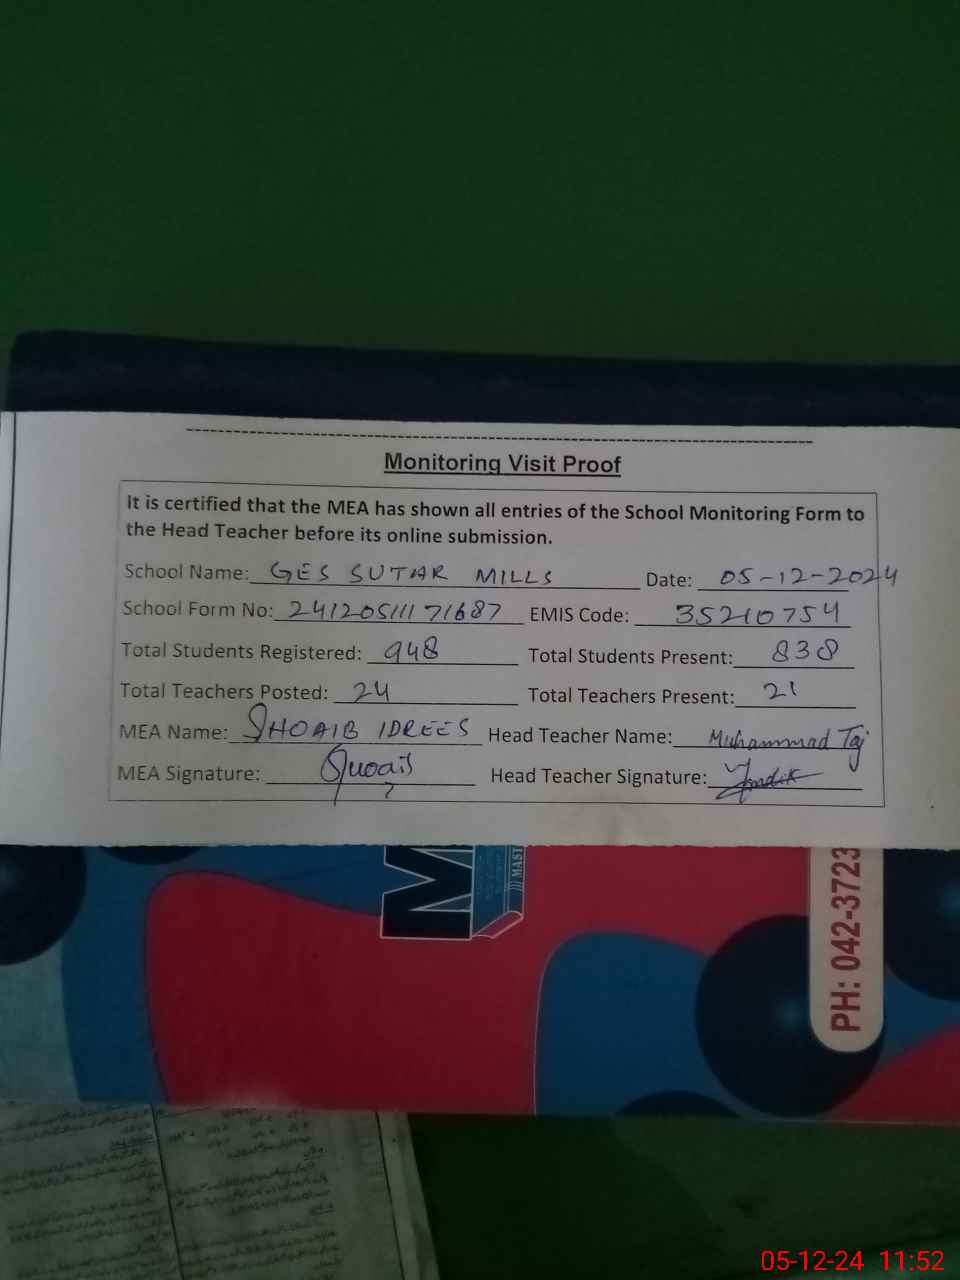 Monitoring Visit Proof
It is certified that the MEA has shown all entries of the School Monitoring Form to
the Head Teacher before its online submission.
School Name: GES SUTAR MILLS Date: 05-12-2024
School Form No: 24120511171687 EMIS Code: 35210754
Total Students Registered: 948 Total Students Present: 838
Total Teachers Posted: 24 Total Teachers Present: 21
MEA Name: SHOAIB IDREES Head Teacher Name: Muhammad Taj
MEA Signature: Shoaib Head Teacher Signature:
PH: 042-3723
05-12-24 11:52